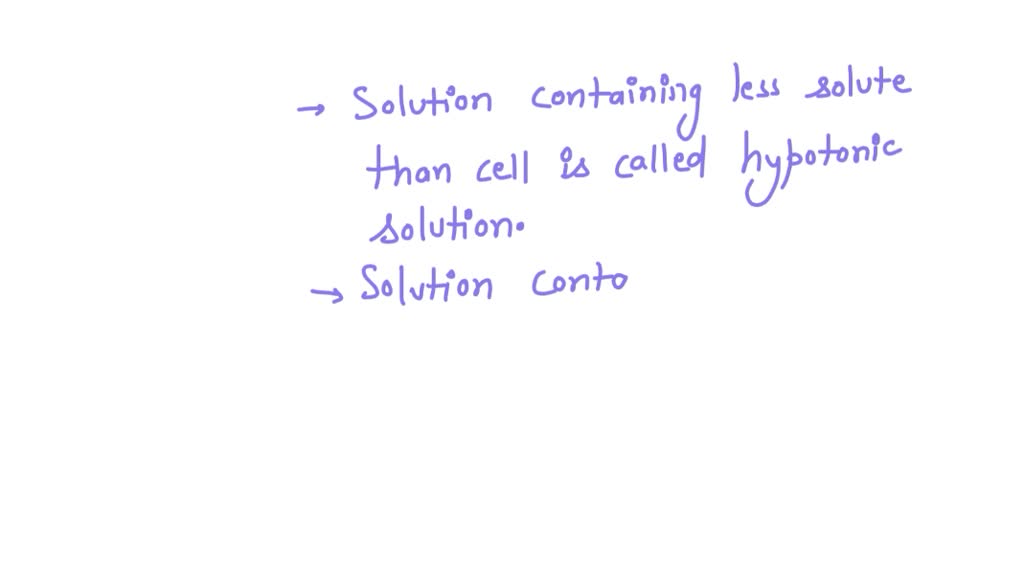 → Solution containing less solute
than cell is called hypotonic
solution.
→ Solution conto